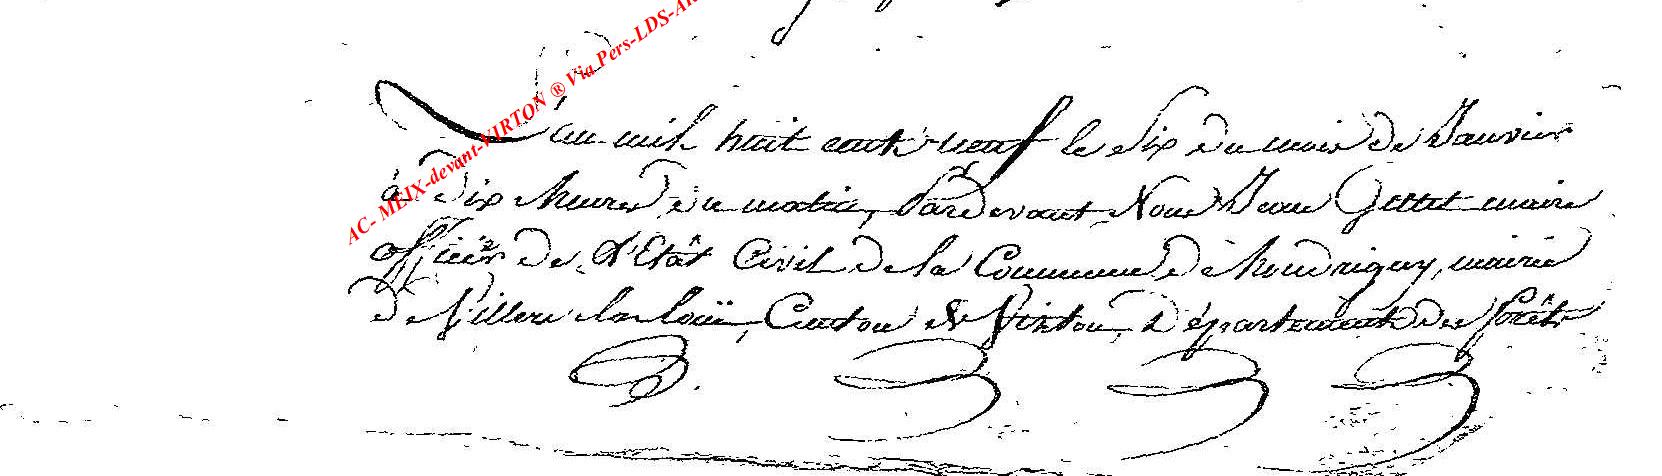 AC- MEIX-devant-VIRTON ® Via Pers-LDS-
L'an mil huit cent neuf le Six du mois de Janvier
à Dix heures du matin, Pardevant Nous Jean Gettet maire
officier de l'Etât Civil de la Commune de houdrigny, mairie
de Villers la loüe, Canton de Virton, Département des Forêts